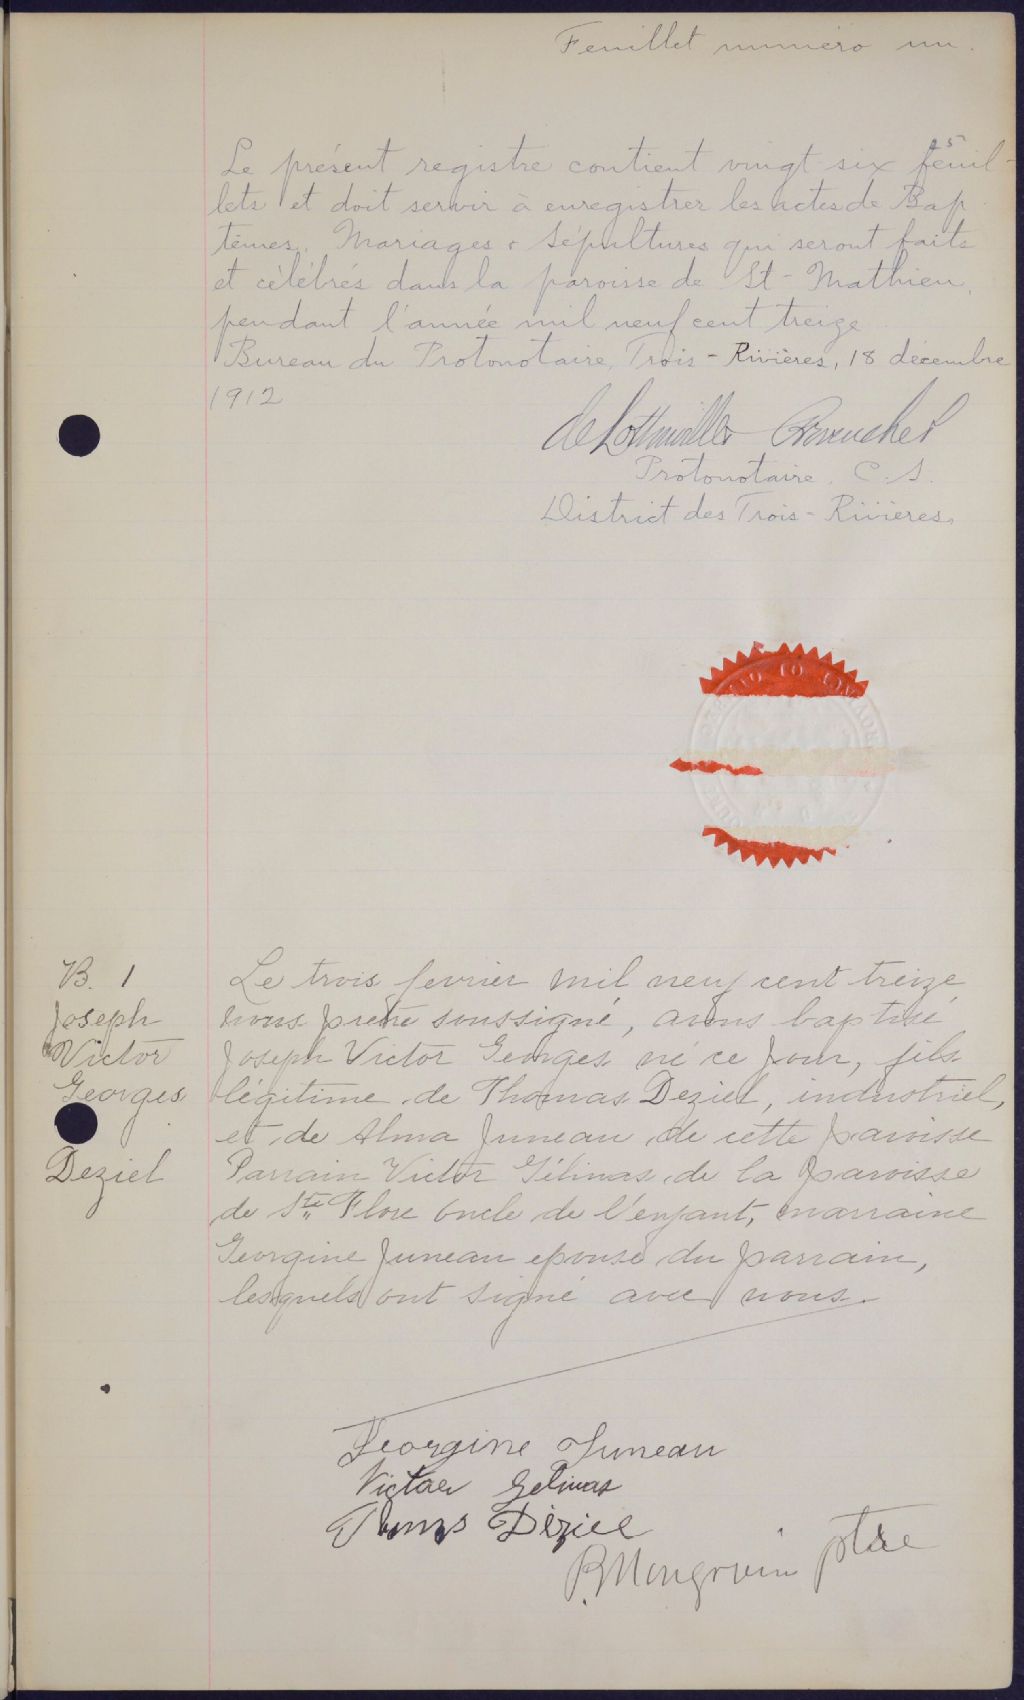 Feuillet numéro un.
Le présent registre contient vingt-six feuil-
lets et doit servir à enregistrer les actes de Bap
têmes, Mariages & Sépultures qui seront faits
et célébrés dans la paroisse de St-Mathieu,
pendant l'année mil neuf cent treize.
Bureau du Protonotaire, Trois-Rivières, 18 décembre
1912
Protonotaire. C. S.
District des Trois-Rivières.
B. 1
Joseph
Victor
Georges
Deziel
Le trois fevrier mil neuf cent treize
nous pretre soussigné, avons baptisé
Joseph Victor Georges né ce jour, fils
légitime de Thomas Deziel, industriel,
et de Alma Juneau de cette paroisse
Parrain Victor Gélinas de la paroisse
de Ste Flore oncle de l'enfant, marraine
Georgine Juneau epouse du parrain,
lesquels ont signé avec nous.
Georgine Juneau
Victor Gelinas
Thomas Déziel
ptre